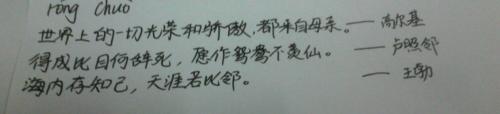 róng chuò
世界上的一切光荣和骄傲，都来自母亲。——高尔基
得成比目何辞死，愿作鸳鸯不羡仙。——卢照邻
海内存知己，天涯若比邻。——王勃